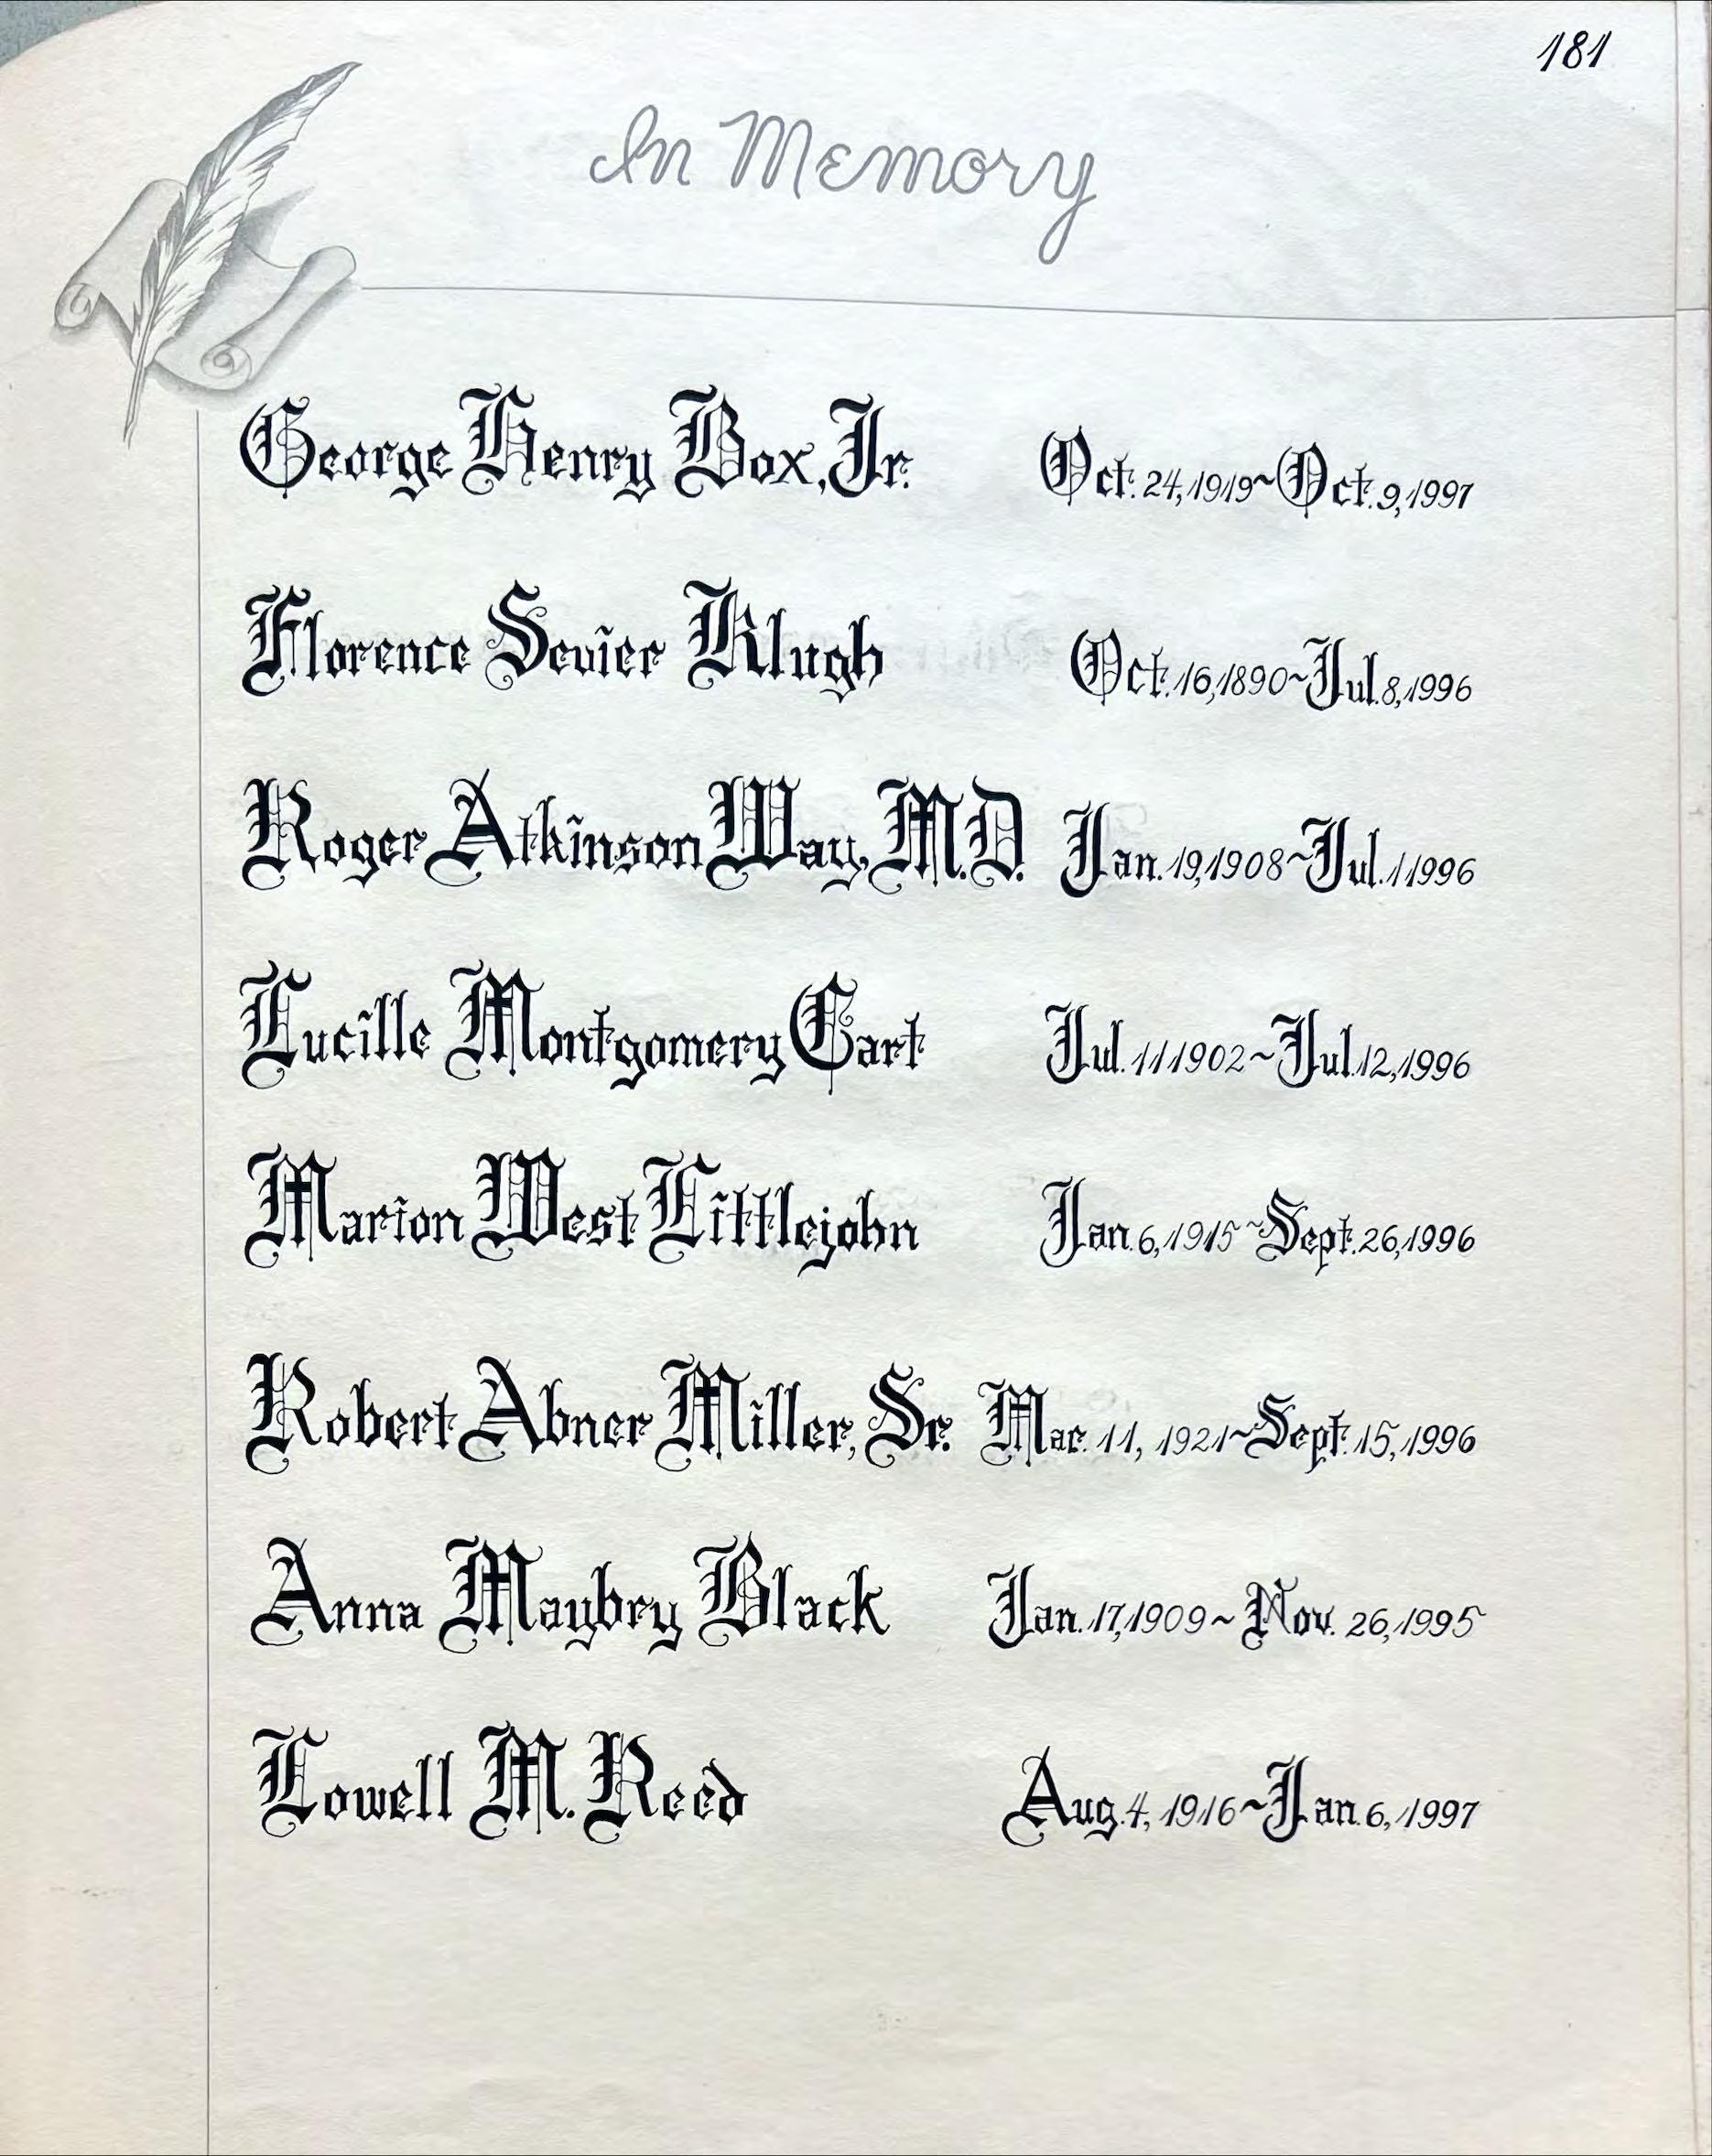 181
In Memory
George Henry Box, Jr. Oct. 24, 1919~Oct. 9, 1997
Florence Sevier Klugh Oct. 16, 1890~Jul. 8, 1996
Roger Atkinson Way, M.D. Jan. 19, 1908~Jul. 1 1996
Lucille Montgomery Cart Jul. 11 1902~Jul. 12, 1996
Marion West Littlejohn Jan. 6, 1915~Sept. 26, 1996
Robert Abner Miller, Sr. Mar. 11, 1921~Sept. 15, 1996
Anna Maybry Black Jan. 17, 1909~Nov. 26, 1995
Lowell M. Reed Aug. 4, 1916~Jan. 6, 1997